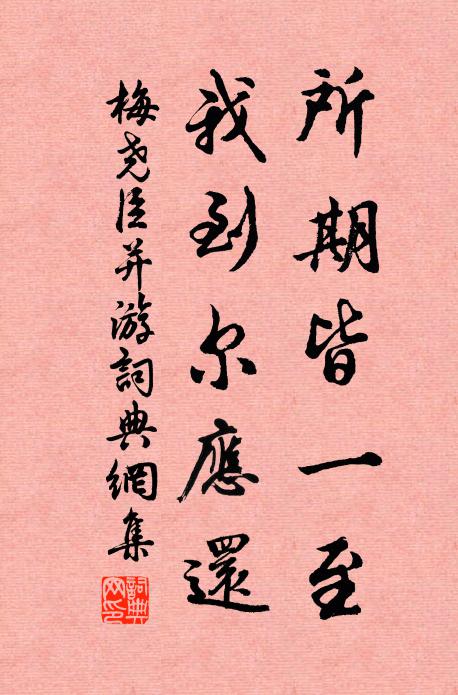 所期皆一至
我到尔應還
梅尧臣并游詞典網集
詞典網印